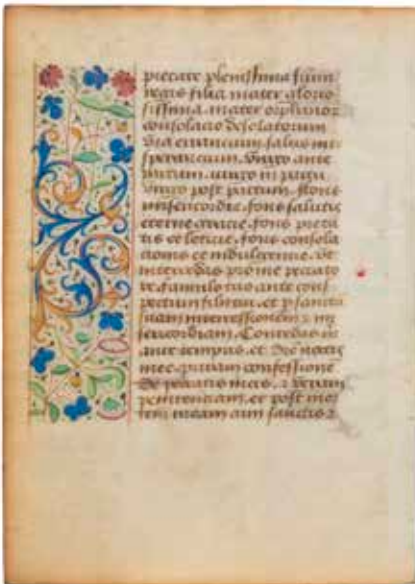 pietate plenissima sum̄i
regis filia mater glorio
sissima. mater orphanoꝝ
consolacio desolatorum
via errancium. salus in te
sperancium. virgo ante
partum. virgo in partu
virgo post partum. fons
misericordie. fons salutis
eterne gracie. fons pieta
tis et leticie. fons consola
tionis et indulgencie. vt
intercedas pro me peccato
re famulo tuo ante cons
pectum filii tui. et p sanctā
suam intercessionem ⁊ mi
sericordiam. Concedas
ante tempus. et diē mortis
mee. puram confessionē
de peccatis meis. ⁊ veram
penitenciam. et post mor
tem meam cum sanctis ⁊